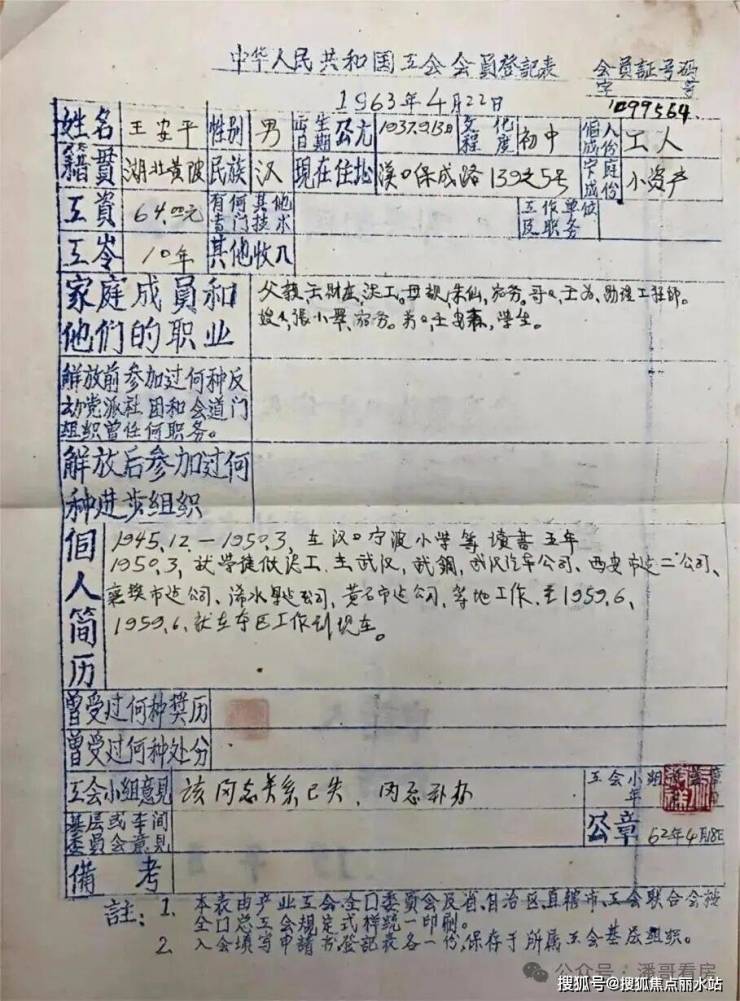 中华人民共和国工会会员登記表
会员証号码
字 号
1099564
1963年4月22日
姓名 王安平 性别 男 出生日期 公元 1937.9.13日 文化程度 初中 個人成份 工人
籍貫 湖北黄陂 民族 汉 現在住址 漢口保成路139之5号 家庭成份 小资产
工資 64.00元 有何其他专门技术 工作单位及职务
工岺 10年 其他收入
家庭成員和
他们的职业
父親,王财庄,泥工。母親,朱仙,家务。哥哥,王为,助理工程師。
嫂嫂,張小翠,家务。弟弟,王安森,学生。
解放前参加过何种反
动党派社团和会道门
組織曾任何职务。
解放后参加过何
种进步组织
個人简历
1945.12.—1950.3,在汉口宁波小学等讀書五年
1950.3,就学徒做泥工.在武汉,武鋼,武汉汽车公司、西安市建二公司、
襄樊市建公司、浠水县建公司,黄石市建公司,等地工作.至1959.6,
1959.6,就在本区工作到現在。
曾受过何种奨历
曾受过何种处分
工会小组意見 该同志关系已失,同意补办 工会小組 章
年
基层或車间
委員会意見
公章 62年4月18日
備考
註:1. 本表由产业工会全口委員会及省、自治区、直轄市、工会联合会按
全口总工会规定式样統一印刷。
2. 入会填写申請书登記表各一份,保存于所属工会基层組织。
公众号:潘哥看房
搜狐号@搜狐焦点丽水站